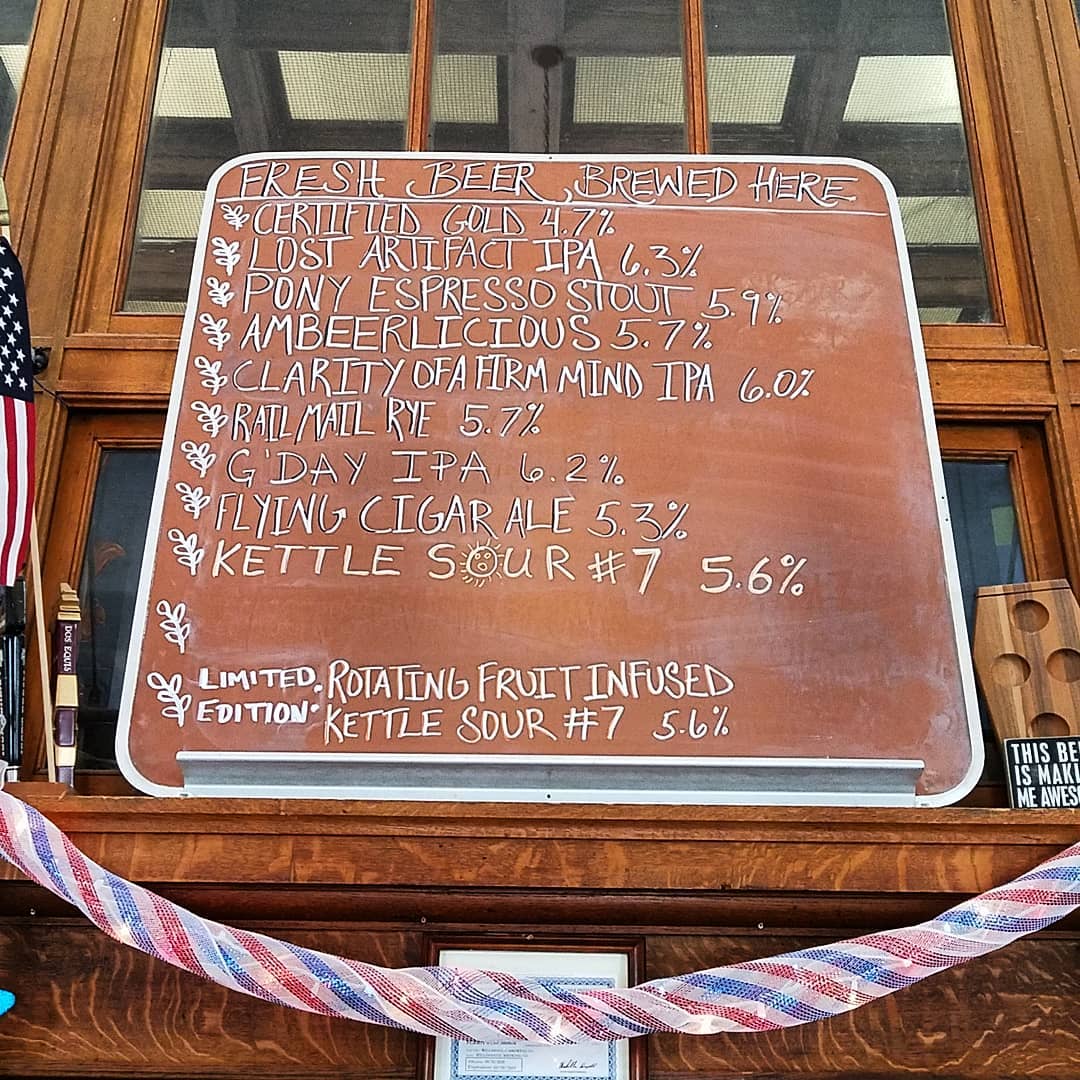 FRESH BEER, BREWED HERE
CERTIFIED GOLD 4.7%
LOST ARTIFACT IPA 6.3%
PONY ESPRESSO STOUT 5.9%
AMBEERLICIOUS 5.7%
CLARITY OF A FIRM MIND IPA 6.0%
RAIL MAIL RYE 5.7%
G'DAY IPA 6.2%
FLYING CIGAR ALE 5.3%
KETTLE SOUR #7 5.6%
LIMITED EDITION: ROTATING FRUIT INFUSED
KETTLE SOUR #7 5.6%
DOS EQUIS
THIS BE
IS MAKI
ME AWES